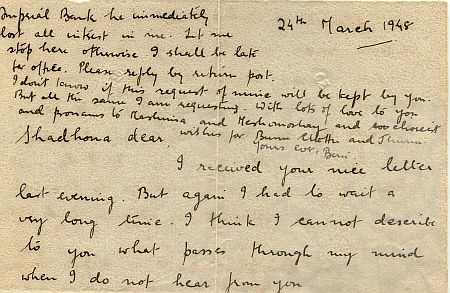 Imperial Bank he immediately
lost all interest in me. Let me
stop here otherwise I shall be late
for office. Please reply by return post.
I don't know if this request of mine will be kept by you.
But all the same I am requesting. With lots of love to you
and pronams to Mashima and Meshomoshay and
wishes for Bunu
yours ever,
24th March 1948
Shadhona dear,
I received your nice letter
last evening. But again I had to wait a
very long time. I think I cannot describe
to you what passes through my mind
when I do not hear from you